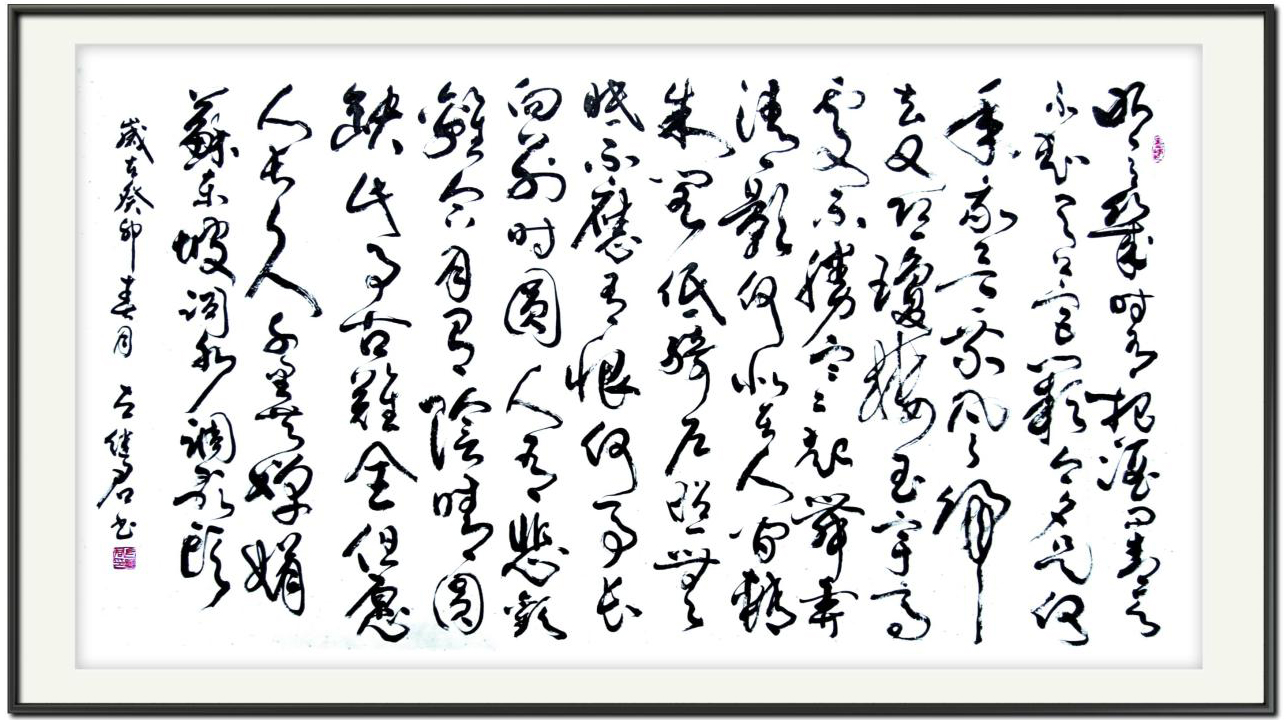 明月幾时有把酒问青天
不知天上宫阙今夕是何
年我欲乘风归
去又恐瓊楼玉宇高
处不胜寒起舞弄
清影何似在人间转
朱阁低绮户照無
眠不應有恨何事长
向别时圆人有悲歡
離合月有陰晴圆
缺此事古難全但愿
人长久千里共嬋娟
蘇东坡词水调歌头
歲在癸卯春月 君书